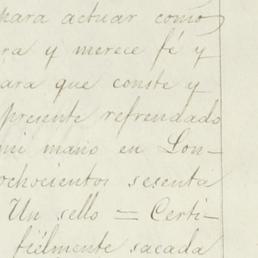 para actuar como
ra y merece fé y
ara que conste y
presente refrendado
mi mano en Lon-
ochocientos sesenta
Un sello = Certi-
fielmente sacada